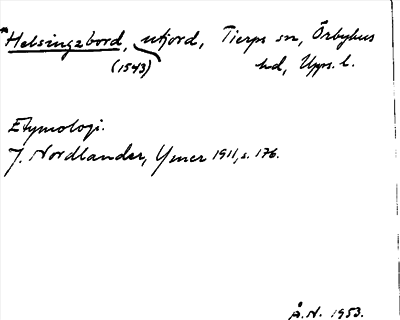 *Helsingebord, utjord, Tierps sn, Örbyhus
(1543) hd, Upps. l.
Etymologi.
J. Nordlander, Ymer 1911, s. 176.
Å.N. 1953.